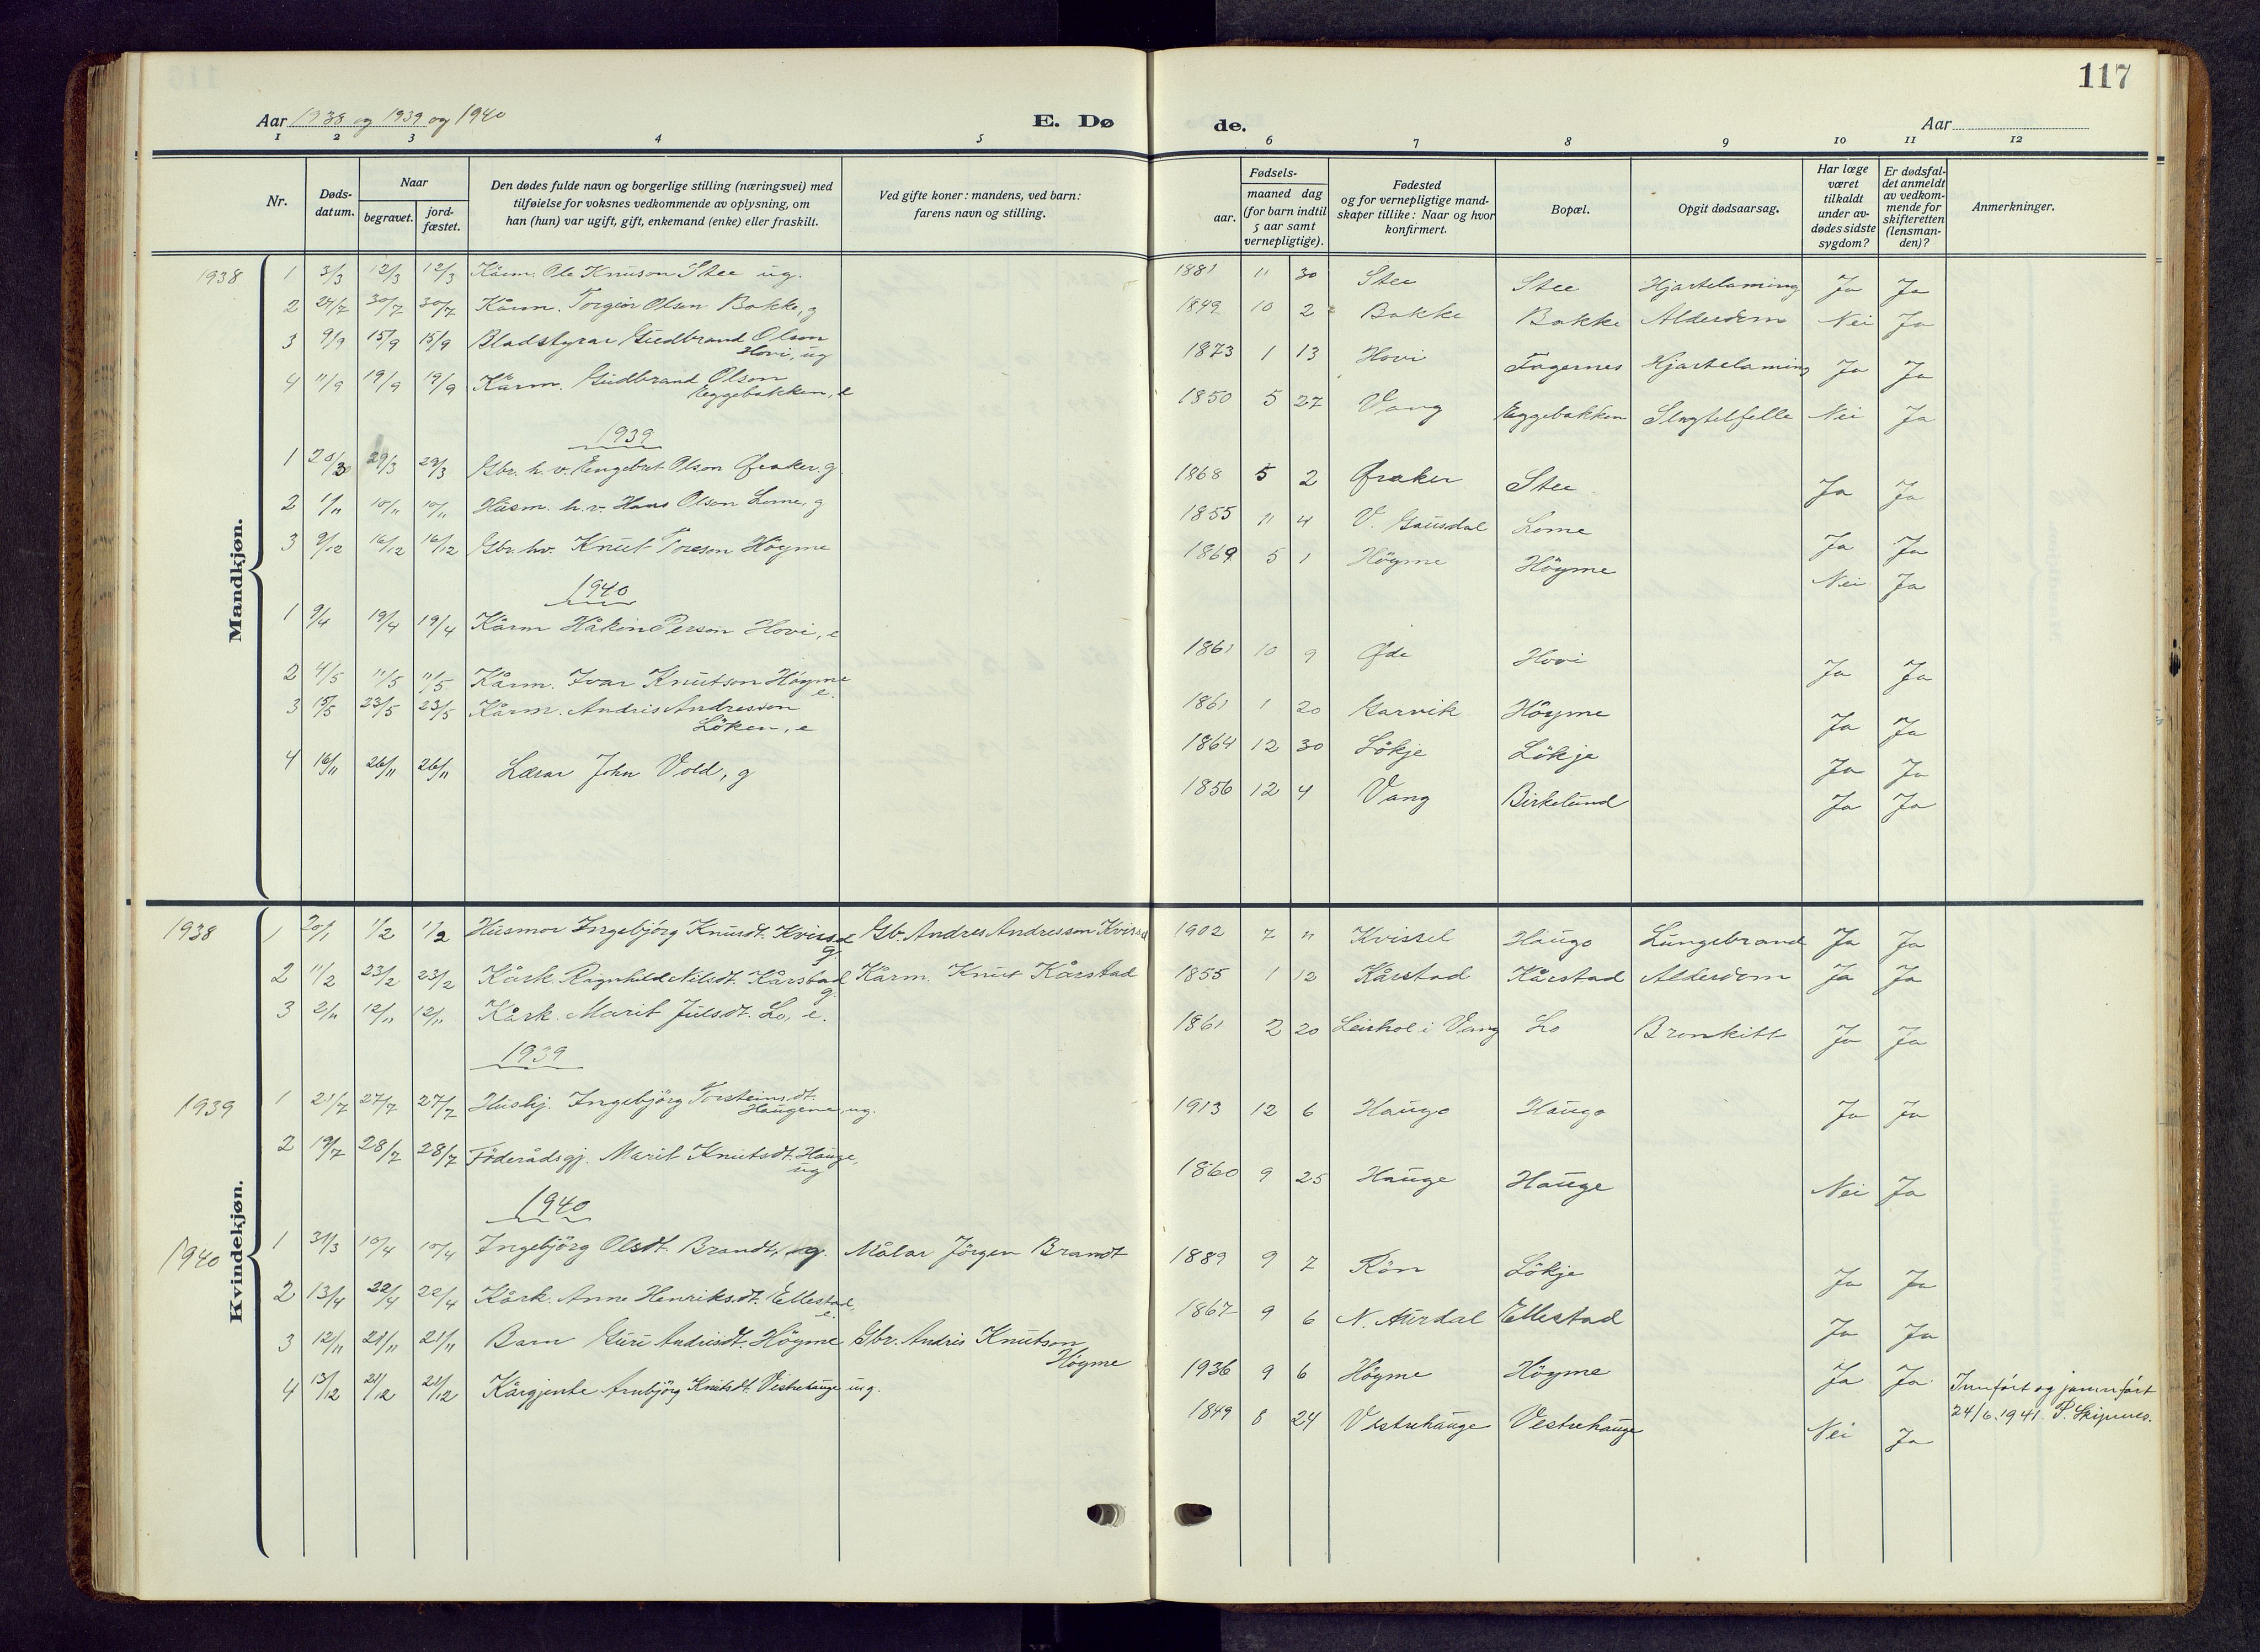 117
Aar 1938 og 1939 og 1940 E. Dø de. Aar
1 2 3 4 5 6 7 8 9 10 11 12
Nr.
Døds-datum.
Naar
begravet.
jord-fæstet.
Den dødes fulde navn og borgerlige stilling (næringsvei) med
tilføielse for voksnes vedkommende av oplysning, om
han (hun) var ugift, gift, enkemand (enke) eller fraskilt.
Ved gifte koner: mandens, ved barn:
farens navn og stilling.
Fødsels-
aar.
maaned dag
(for barn indtil
5 aar samt
vernepligtige).
Fødested
og for vernepligtige mand-
skaper tillike: Naar og hvor
konfirmert.
Bopæl.
Opgit dødsaarsag.
Har læge
været
tilkaldt
under av-
dødes sidste
sygdom?
Er dødsfal-
det anmeldt
av vedkom-
mende for
skifteretten
(lensman-
den)?
Anmerkninger.
Mandkjøn.
1938 1 3/3 12/3 12/3 Kårm. Ole Knutson Stee ug. 1881 11 30 Stee Stee Hjartelaming Ja Ja
2 24/7 30/7 30/7 Kårm. Torgeir Olsen Bakke, g 1849 10 2 Bakke Bakke Alderdom Nei Ja
3 9/9 15/9 15/9 Bladstyrar Gudbrand Olson
Hovi, ug 1873 1 13 Hovi Fagernes Hjartelaming Ja Ja
4 11/9 19/9 19/9 Kårm. Gudbrand Olson
Eggebakken, e 1850 5 27 Vang Eggebakken Slagtelfelle Nei Ja
1939
1 20/3 29/3 29/3 Gbr. h. v. Engebret Olson Øraker. g. 1868 5 2 Øraker Stee Ja Ja
2 1/11 10/11 10/11 Husm. h. v. Hans Olson Lome, g 1855 11 4 V. Gausdal Lome Ja Ja
3 9/12 16/12 16/12 Gbr. hv. Knut Toreson Höyme 1869 5 1 Höyme Höyme Nei Ja
1940
1 9/4 19/4 19/4 Kårm Håkin Person Hovi, e 1861 10 9 Øde Hovi Ja Ja
2 4/5 11/5 11/5 Kårm. Ivar Knutson Höyme
e. 1861 1 20 Garvik Höyme Ja Ja
3 15/5 23/5 23/5 Kårm. Andris Andresson
Löken, e 1864 12 30 Lökje Lökje Ja Ja
4 16/11 26/11 26/11 Lærar John Vold, g 1856 12 4 Vang Birkelund Ja Ja
Kvindekjøn.
1938 1 20/1 1/2 1/2 Husmor Ingebjörg Knutsdt. Kvissel
g Gb. Andres Andresson Kvissel 1902 7 11 Kvissel Haugo Lungebrand Ja Ja
2 11/2 23/2 23/2 Kårk. Ragnhild Nilsdt. Kårstad
g. Kårm. Knut Kårstad 1855 1 12 Kårstad Kårstad Alderdom Ja Ja
3 2/11 12/11 12/11 Kårk. Marit Julsdt. Lo, e. 1861 2 20 Leirhol i Vang Lo Bronkitt Ja Ja
1939
1939 1 21/7 27/7 27/7 Hushj. Ingebjörg Torsteinsdt.
Haugene, ug. 1913 12 6 Haugo Haugo Ja Ja
2 19/7 28/7 28/7 Föderådsgj. Marit Knutsdt. Hauge,
ug 1860 9 25 Hauge Hauge Nei Ja
1940
1940 1 31/3 10/4 10/4 Ingebjörg Olsdt. Brandt, g. Målar Jörgen Brandt 1889 9 7 Rön Lökje Ja Ja
2 13/4 22/4 22/4 Kårk. Anne Henriksdt. Ellestad,
e. 1867 9 6 N. Aurdal Ellestad Ja Ja
3 12/11 21/11 21/11 Barn Guri Andrisdt. Höyme Gbr. Andris Knutson
Höyme 1936 9 6 Höyme Höyme Ja Ja
4 13/12 21/12 21/12 Kårgjente Arnbjörg Knutsdt. Vestrehauge ug. 1849 8 24 Vestrehauge Vestrehauge Nei Ja
Innfört og jamnfört
24/6.1941. P. Skipnes.